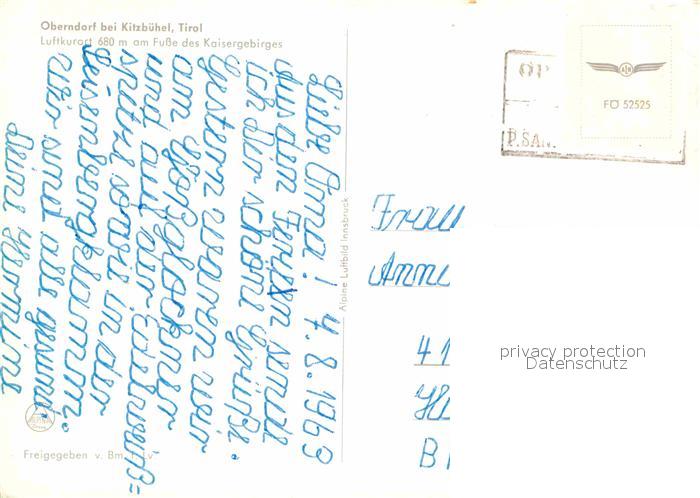 Oberndorf bei Kitzbühel, Tirol
Luftkurort 680 m am Fuße des Kaisergebirges
Liebe Oma! 4.8.1969
Aus den Ferien sende
ich dir schöne Grüße.
Gestern waren wir
am Großglockner
und auf der Edelweiß=
spitze sowie in der
Leisenbergklamm.
Wir sind alle gesund.
Deine Hermine
Alpine Luftbild Innsbruck
Freigegeben v. Bm. f. Lv.
ÖP
P.SAN
FO 52525
Frau
Anna
41
privacy protection
Datenschutz